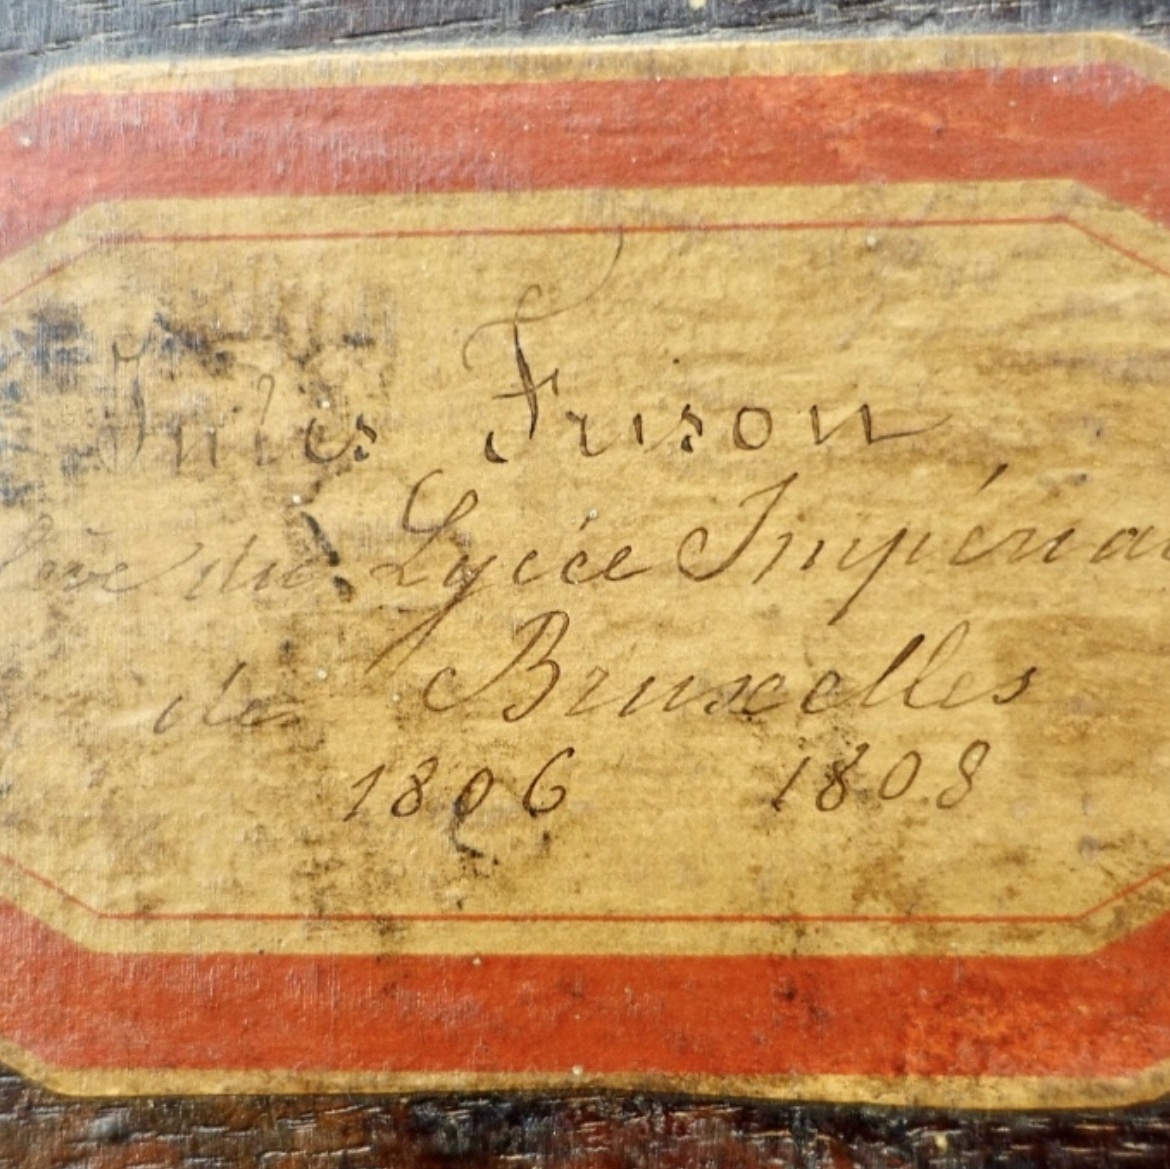 Jules Frison
lève du Lycée Impéria
de Bruxelles
1806 1808